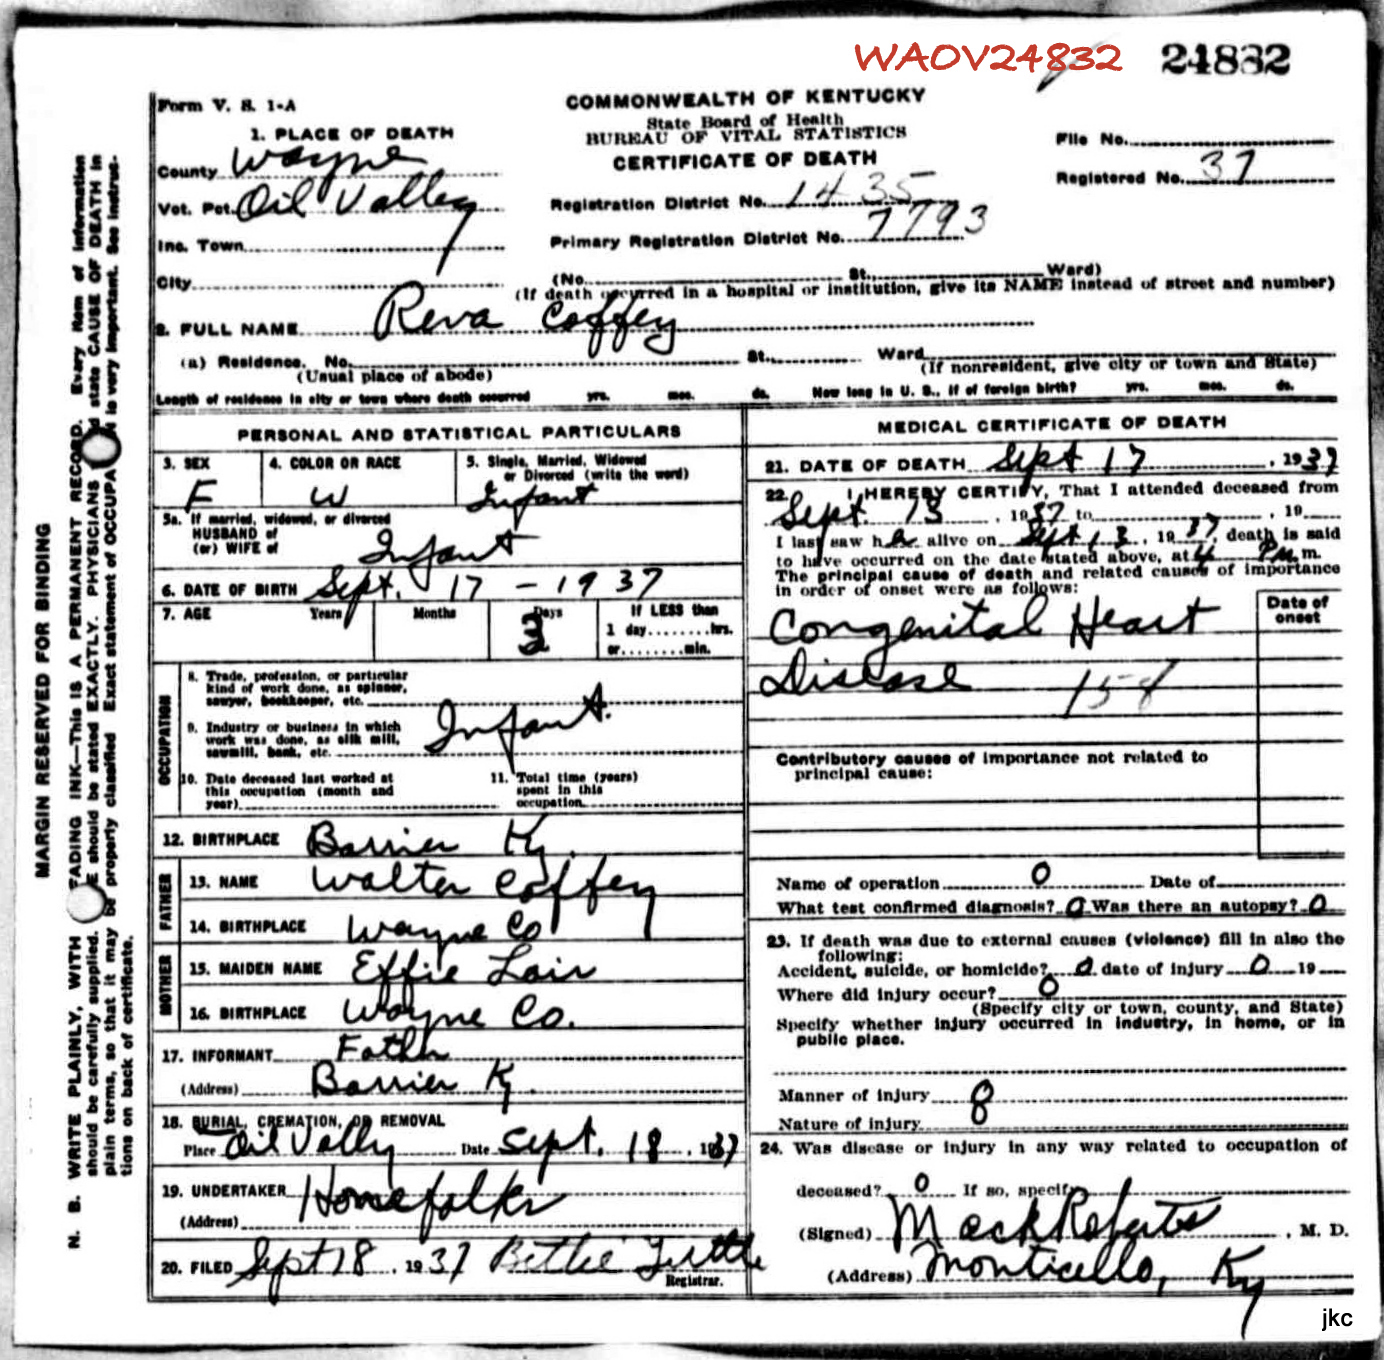 WAOV24832 24832
Form V. S. 1-A
COMMONWEALTH OF KENTUCKY
State Board of Health
BUREAU OF VITAL STATISTICS
CERTIFICATE OF DEATH
1. PLACE OF DEATH
County Wayne
Vot. Pct. Oil Valley
Inc. Town
City
File No.
Registered No. 37
Registration District No. 1435
Primary Registration District No. 7793
(No. St., Ward)
(If death occurred in a hospital or institution, give its NAME instead of street and number)
2. FULL NAME Reva Coffey
(a) Residence. No. St., Ward
(Usual place of abode) (If nonresident, give city or town and State)
Length of residence in city or town where death occurred yrs. mos. ds. How long in U. S., if of foreign birth? yrs. mos. ds.
PERSONAL AND STATISTICAL PARTICULARS
3. SEX
F
4. COLOR OR RACE
W
5. Single, Married, Widowed
or Divorced (write the word)
Infant
5a. If married, widowed, or divorced
HUSBAND of
(or) WIFE of Infant
6. DATE OF BIRTH Sept. 17 - 1937
7. AGE Years Months Days If LESS than
1 day hrs.
or min.
OCCUPATION
8. Trade, profession, or particular
kind of work done, as spinner,
sawyer, bookkeeper, etc.
9. Industry or business in which
work was done, as silk mill,
sawmill, bank, etc. Infant.
10. Date deceased last worked at
this occupation (month and
year)
11. Total time (years)
spent in this
occupation
12. BIRTHPLACE Barrier Ky.
FATHER
13. NAME Walter Coffey
14. BIRTHPLACE Wayne Co
MOTHER
15. MAIDEN NAME Effie Lair
16. BIRTHPLACE Wayne Co.
17. INFORMANT Father
(Address) Barrier Ky.
18. BURIAL, CREMATION, OR REMOVAL
Place Oil Vally Date Sept. 18, 1937
19. UNDERTAKER Homefolks
(Address)
20. FILED Sept 18, 1937 Bettie Tuttle
Registrar.
MEDICAL CERTIFICATE OF DEATH
21. DATE OF DEATH Sept 17, 1937
22. I HEREBY CERTIFY, That I attended deceased from
Sept 13, 1937 to , 19
I last saw her alive on Sept 13, 1937, death is said
to have occurred on the date stated above, at 4 P. m.
The principal cause of death and related causes of importance
in order of onset were as follows:
Date of
onset
Congenital Heart
Disease
Contributory causes of importance not related to
principal cause:
Name of operation 0 Date of
What test confirmed diagnosis? 0 Was there an autopsy? 0
23. If death was due to external causes (violence) fill in also the
following:
Accident, suicide, or homicide? 0 date of injury 0 19
Where did injury occur? 0
(Specify city or town, county, and State)
Specify whether injury occurred in industry, in home, or in
public place.
Manner of injury
Nature of injury
24. Was disease or injury in any way related to occupation of
deceased? 0 If so, specify
(Signed) Mack Roberts, M. D.
(Address) Monticello, Ky
jkc
MARGIN RESERVED FOR BINDING
N. B. WRITE PLAINLY, WITH FADING INK—This IS A PERMANENT RECORD. Every item of information
should be carefully supplied. should be stated EXACTLY. PHYSICIANS state CAUSE OF DEATH in
plain terms, so that it may be properly classified Exact statement of OCCUPA is very important. See instruc-
tions on back of certificate.